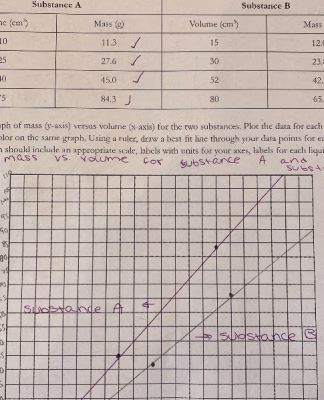 Substance A Substance B
me (cm³) Mass (g) Volume (cm³) Mass
10 11.3 ✓ 15 12.
25 27.6 ✓ 30 23.
40 45.0 ✓ 52 42.
75 84.3 ✓ 80 65.
ph of mass (y-axis) versus volume (x-axis) for the two substances. Plot the data for each
olor on the same graph. Using a ruler, draw a best fit line through your data points for e
h should include an appropriate scale, labels with units for your axes, labels for each liqui
mass vs volume for substance A and
subst
substance A
substance B